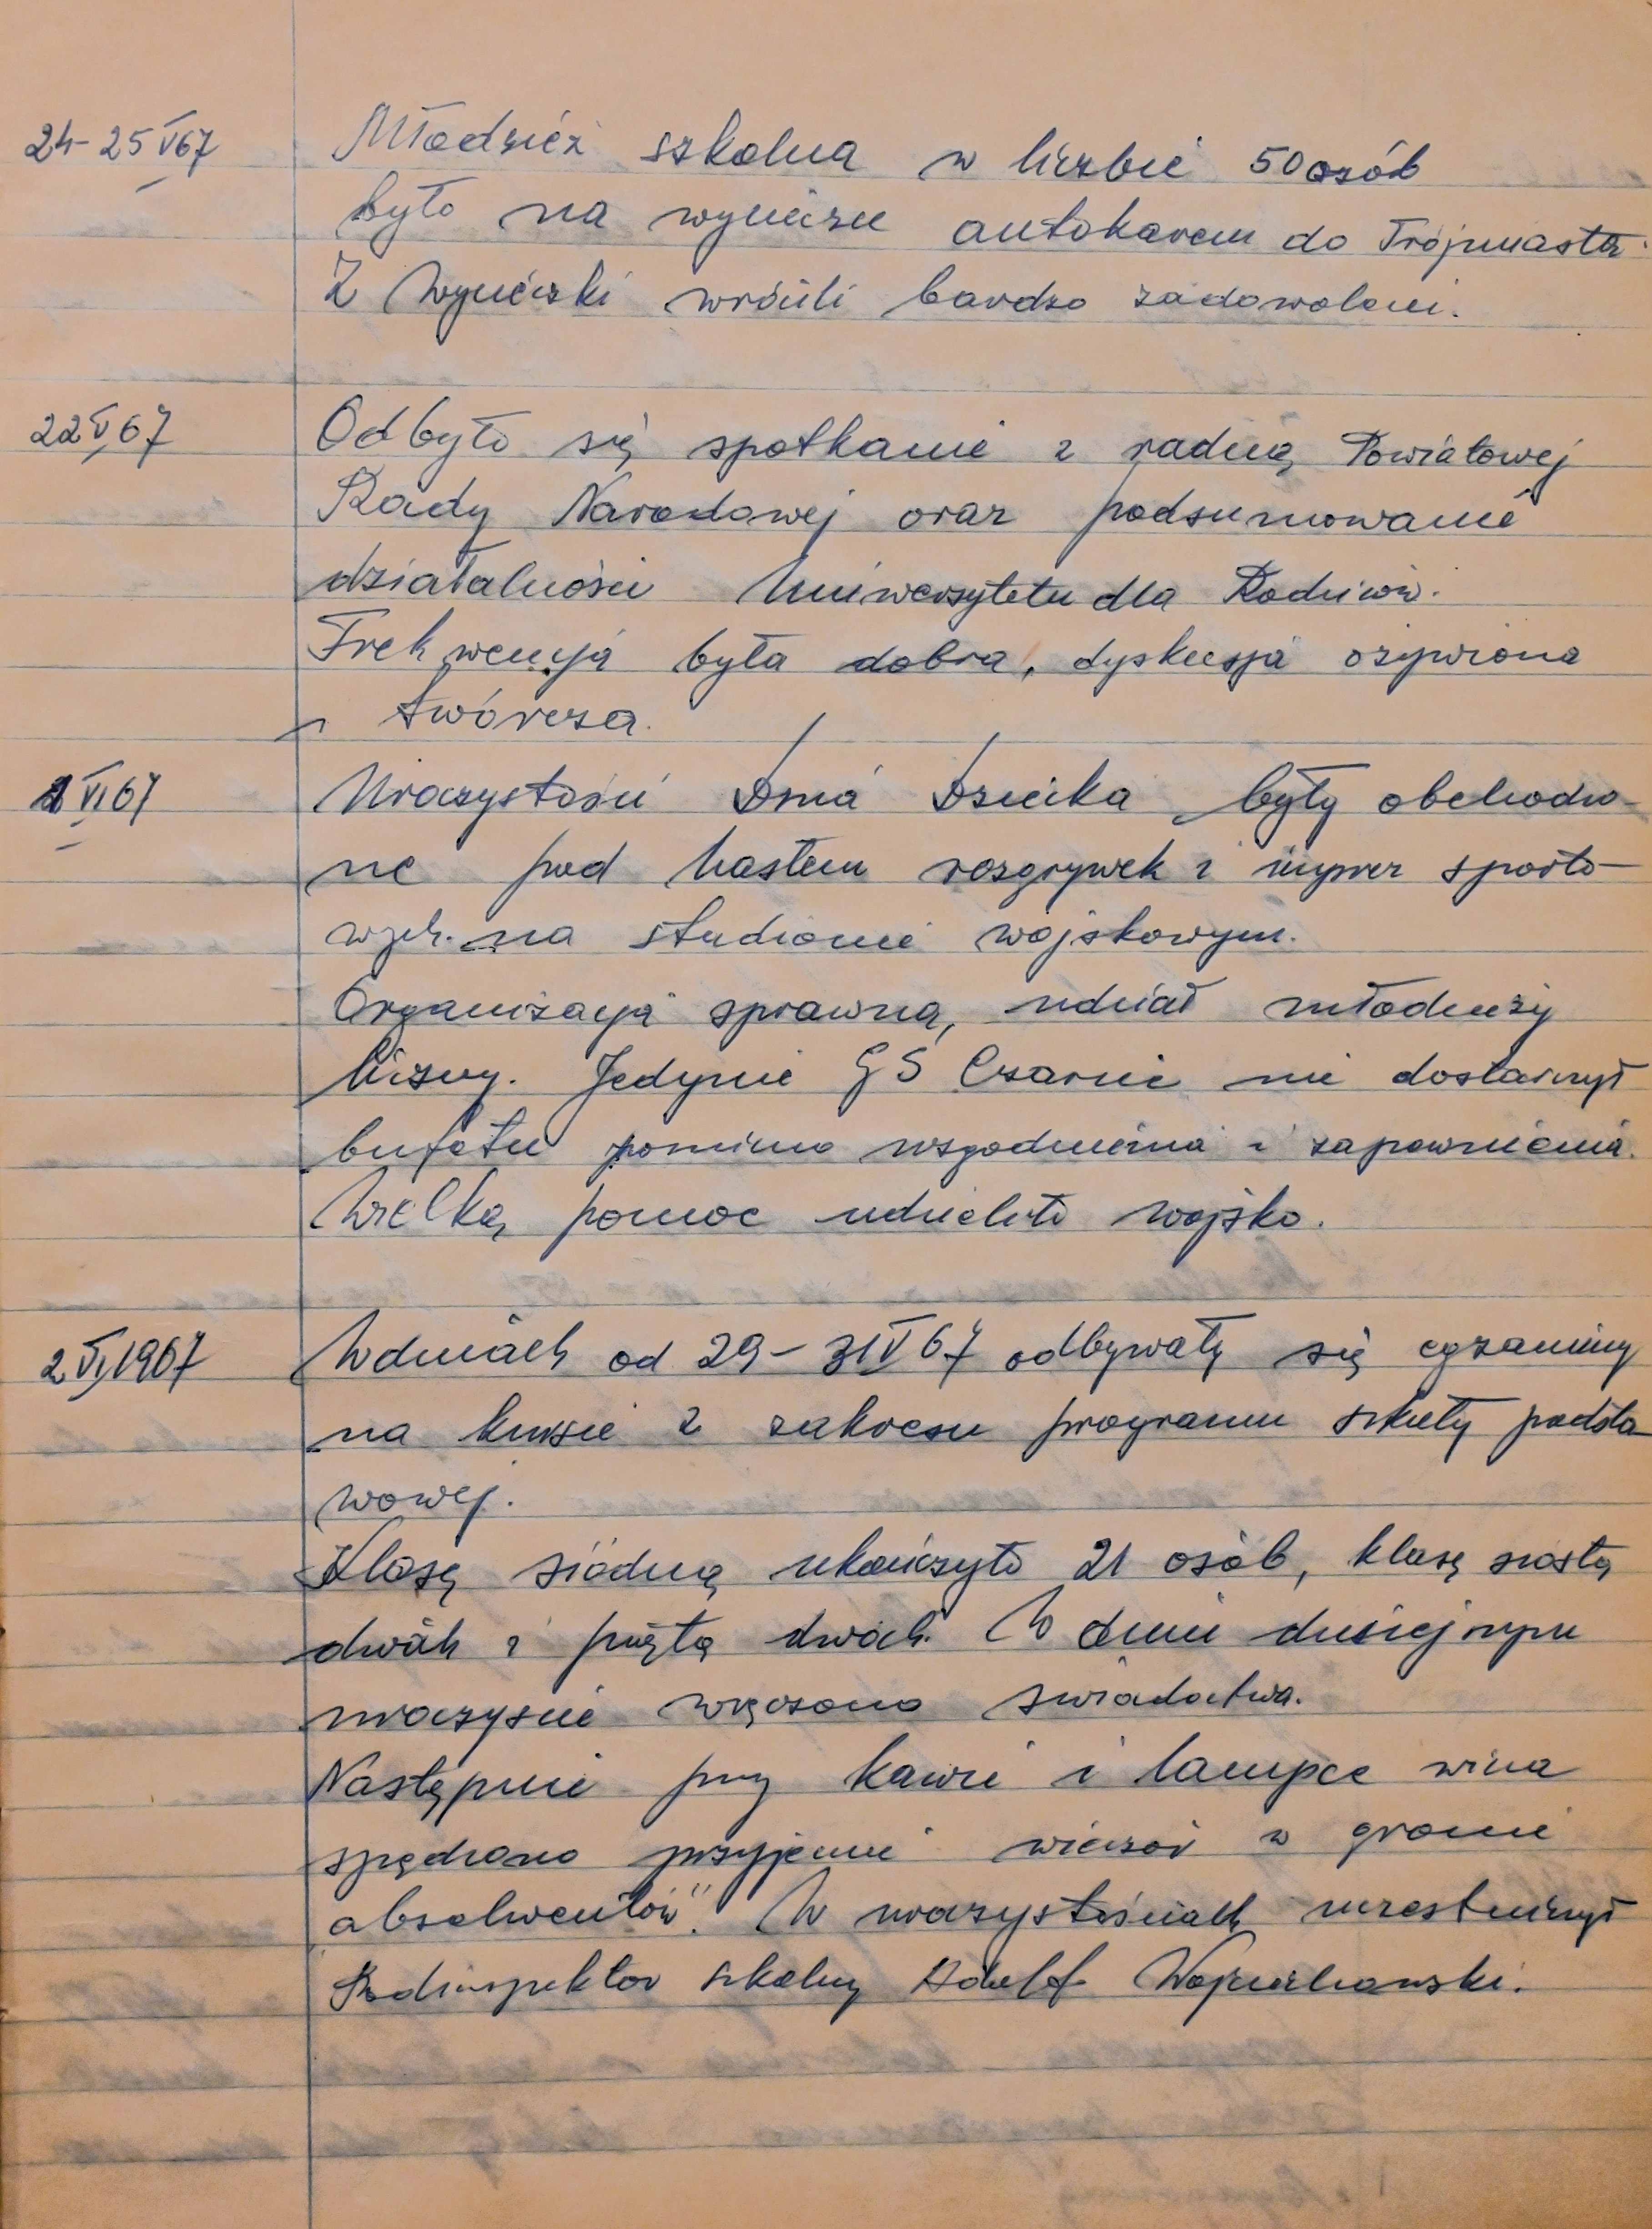 24-25 V 67 Młodzież szkolna w liczbie 50 osób
było na wycieczce autokarem do Trójmiasta.
Z wycieczki wrócili bardzo zadowoleni.
22 V 67 Odbyło się spotkanie z radną Powiatowej
Rady Narodowej oraz podsumowanie
działalności Uniwersytetu dla Rodziców.
Frekwencja była dobra, dyskusja ożywiona
i twórcza.
1 VI 67 Uroczystości Dnia Dziecka były obchodzo-
ne pod hasłem rozgrywek i imprez sporto-
wych. na stadionie wojskowym.
Organizacja sprawna, udział młodzieży
liczny. Jedynie GS Czarne nie dostarczył
bufetu pomimo uzgodnienia i zapewnienia.
Wielką pomoc udzieliło wojsko.
2 VI 1967 W dniach od 29-31 V 67 odbywały się egzaminy
na kursie z zakresu programu szkoły podsta-
wowej.
Klasę siódmą ukończyło 21 osób, klasę szóstą
dwóch i piątą dwóch. W dniu dzisiejszym
uroczyście wręczono świadectwa.
Następnie przy kawie i lampce wina
spędzono przyjemnie wieczór w gronie
absolwentów". W uroczystościach uczestniczył
Podinspektor szkolny Adolf Wojciechowski.